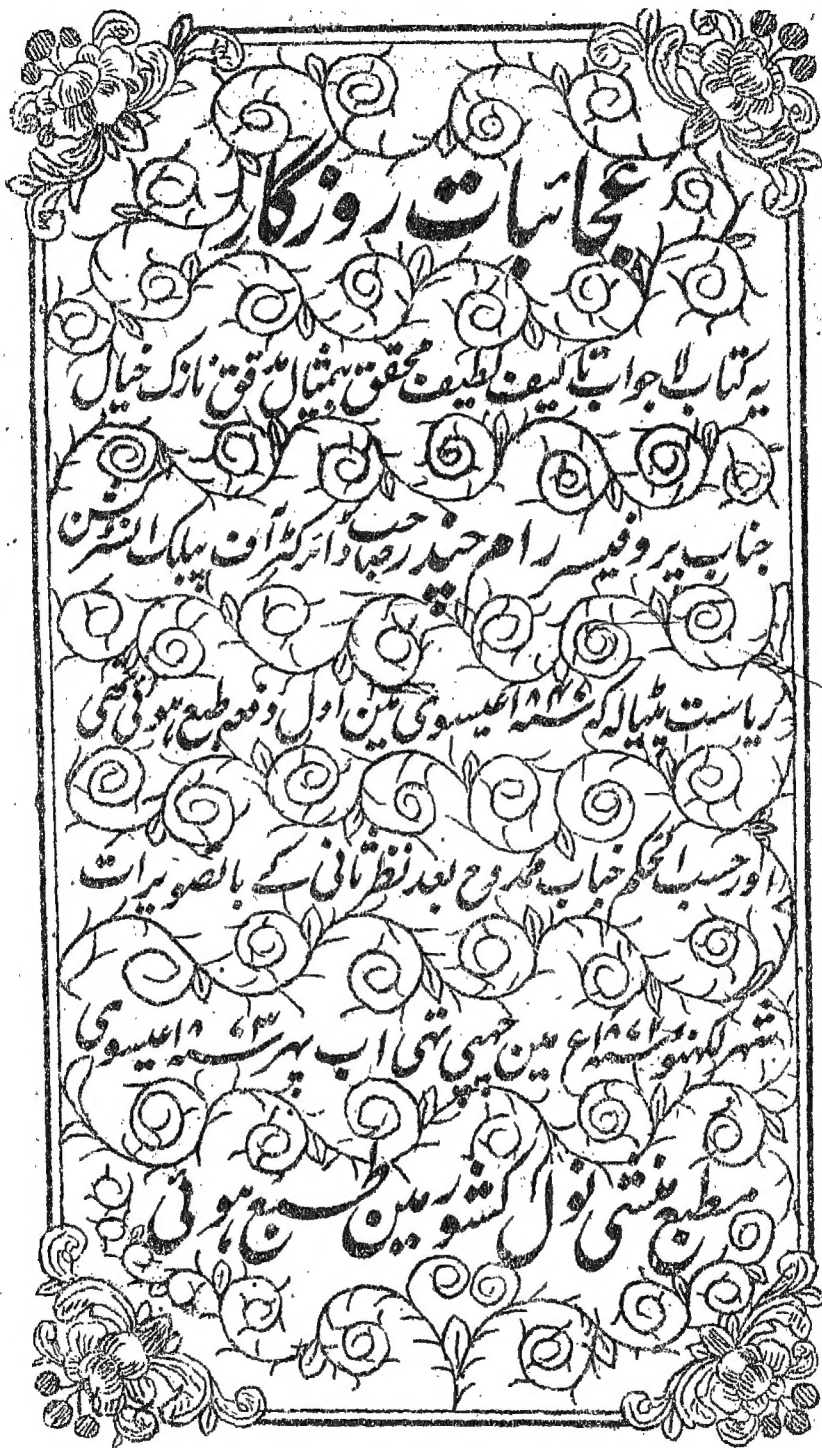 عجائبات روزگار
یہ کتاب لاجواب تالیف لطیف محقق بیمثال مدقق نازک خیال
جناب پروفیسر رام چندر صاحب ڈائرکٹر آف پبلک انسٹرکشن
ریاست پٹیالہ کہ سنہ ۱۸۴۷ عیسوی مین اول دفعہ طبع ہوئی تھی
اور حسب الحکم جناب ممدوح بعد نظر ثانی کے بالتصویرات
شہر لکھنؤ سنہ ع مین چھپی تھی اب پھر سنہ عیسوی
مطبع منشی نول کشور مین طبع ہوئی